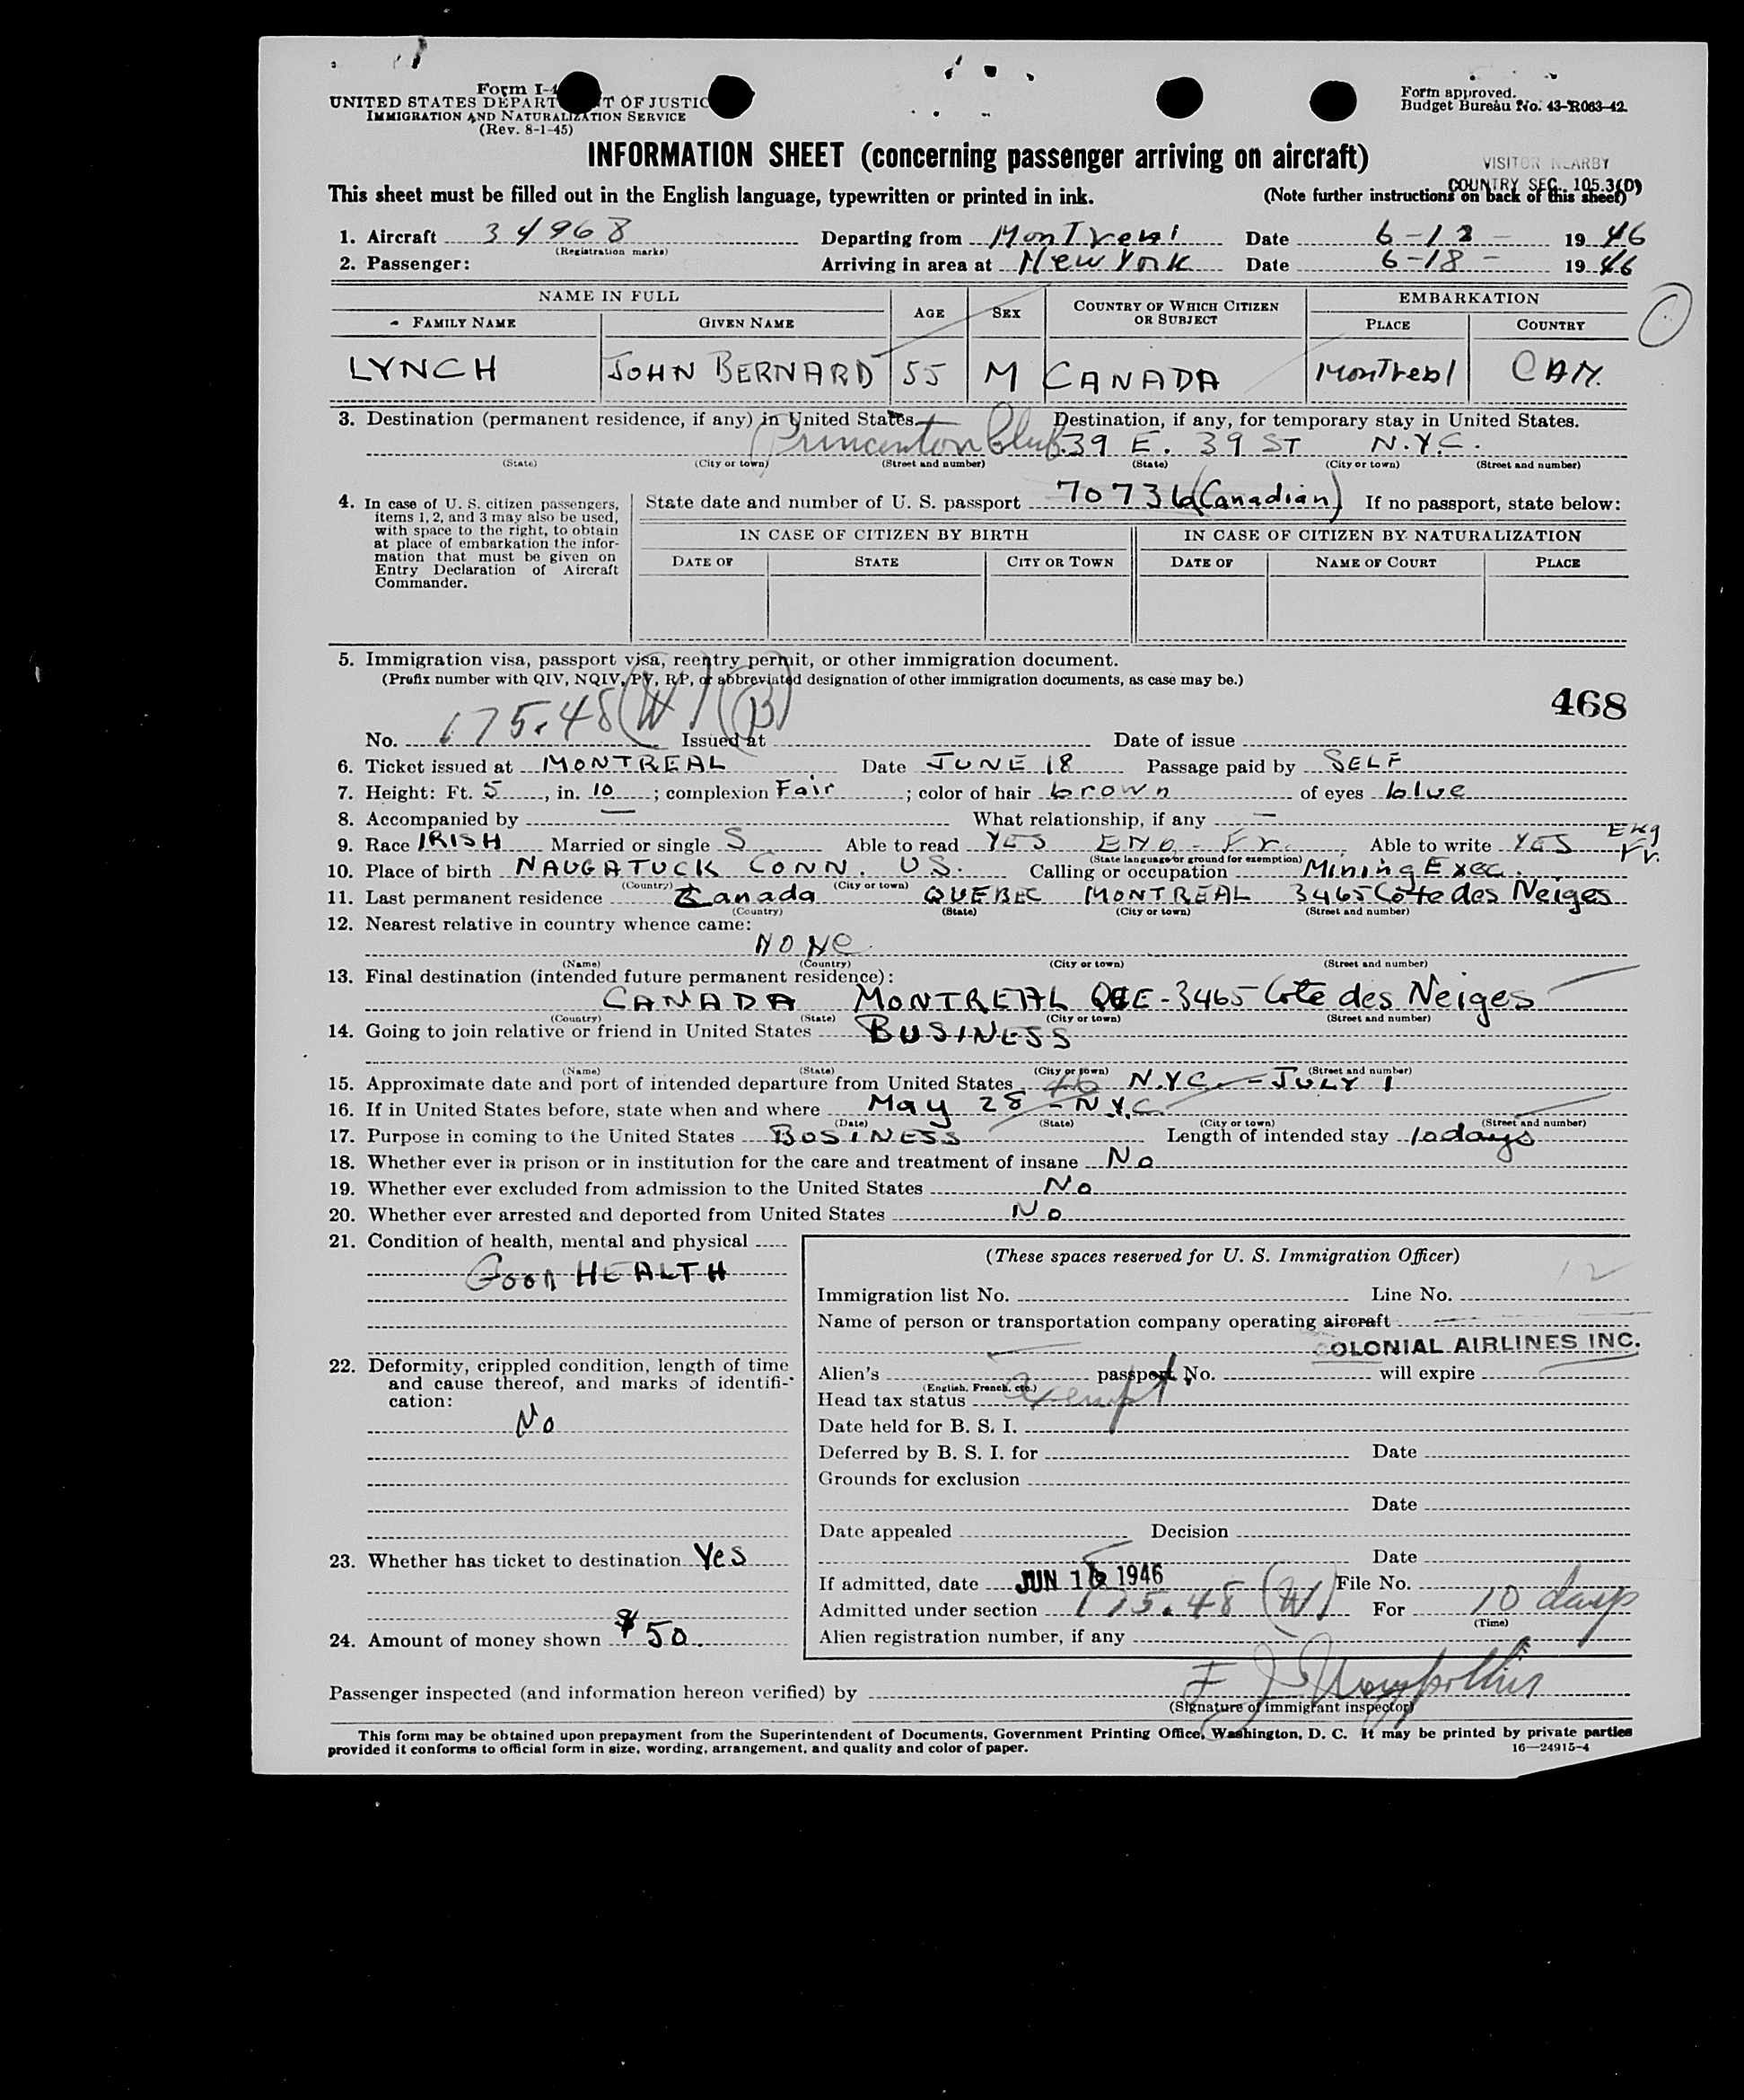 Form I-
UNITED STATES DEPART T OF JUSTIC
IMMIGRATION AND NATURALIZATION SERVICE
(Rev. 8-1-45)
Form approved.
Budget Bureau No. 43-R063-42
INFORMATION SHEET (concerning passenger arriving on aircraft)
VISITOR NEARBY
COUNTRY SEC. 105.3(D)
This sheet must be filled out in the English language, typewritten or printed in ink. (Note further instructions on back of this sheet)
1. Aircraft 34968 Departing from Montreal Date 6-18- 1946
(Registration marks)
2. Passenger: Arriving in area at New York Date 6-18- 1946
NAME IN FULL AGE SEX COUNTRY OF WHICH CITIZEN OR SUBJECT EMBARKATION
FAMILY NAME GIVEN NAME PLACE COUNTRY
LYNCH JOHN BERNARD 55 M CANADA Montreal CAN.
3. Destination (permanent residence, if any) in United States. Destination, if any, for temporary stay in United States.
Princenton Club. 39 E. 39 ST N.Y.C.
(State) (City or town) (Street and number) (State) (City or town) (Street and number)
4. In case of U. S. citizen passengers, items 1, 2, and 3 may also be used, with space to the right, to obtain at place of embarkation the information that must be given on Entry Declaration of Aircraft Commander.
State date and number of U. S. passport 70736 (Canadian) If no passport, state below:
IN CASE OF CITIZEN BY BIRTH IN CASE OF CITIZEN BY NATURALIZATION
DATE OF STATE CITY OR TOWN DATE OF NAME OF COURT PLACE
5. Immigration visa, passport visa, reentry permit, or other immigration document.
(Prefix number with QIV, NQIV, PV, RP, or abbreviated designation of other immigration documents, as case may be.)
468
No. 175.48 (W) (B) Issued at Date of issue
6. Ticket issued at MONTREAL Date JUNE 18 Passage paid by SELF
7. Height: Ft. 5, in. 10; complexion Fair; color of hair brown of eyes blue
8. Accompanied by — What relationship, if any —
9. Race IRISH Married or single S Able to read YES ENG - Fr. Able to write YES Eng Fr.
(State language or ground for exemption)
10. Place of birth NAUGATUCK CONN. U.S. Calling or occupation Mining Exec.
(Country) (City or town)
11. Last permanent residence Canada QUEBEC MONTREAL 3465 Cote des Neiges
(Country) (State) (City or town) (Street and number)
12. Nearest relative in country whence came:
NONE
(Name) (Country) (City or town) (Street and number)
13. Final destination (intended future permanent residence):
CANADA MONTREAL QUE - 3465 Cote des Neiges
(Country) (State) (City or town) (Street and number)
14. Going to join relative or friend in United States BUSINESS
(Name) (State) (City or town) (Street and number)
15. Approximate date and port of intended departure from United States N.Y.C. - JULY 1
16. If in United States before, state when and where May 28 - N.Y.C.
(Date) (State) (City or town) (Street and number)
17. Purpose in coming to the United States BUSINESS Length of intended stay 10 days
18. Whether ever in prison or in institution for the care and treatment of insane No
19. Whether ever excluded from admission to the United States No
20. Whether ever arrested and deported from United States No
21. Condition of health, mental and physical
GOOD HEALTH
22. Deformity, crippled condition, length of time and cause thereof, and marks of identification:
No
23. Whether has ticket to destination Yes
24. Amount of money shown $50.
(These spaces reserved for U. S. Immigration Officer)
12
Immigration list No. Line No.
Name of person or transportation company operating aircraft
COLONIAL AIRLINES INC.
Alien's passport No. will expire
(English, French, etc.)
Head tax status exempt
Date held for B. S. I.
Deferred by B. S. I. for Date
Grounds for exclusion
Date
Date appealed Decision
Date
If admitted, date JUN 18 1946 File No.
Admitted under section 175.48 (W) For 10 days
(Time)
Alien registration number, if any
Passenger inspected (and information hereon verified) by
(Signature of immigrant inspector)
This form may be obtained upon prepayment from the Superintendent of Documents, Government Printing Office, Washington, D. C. It may be printed by private parties
provided it conforms to official form in size, wording, arrangement, and quality and color of paper.
16—24915-4